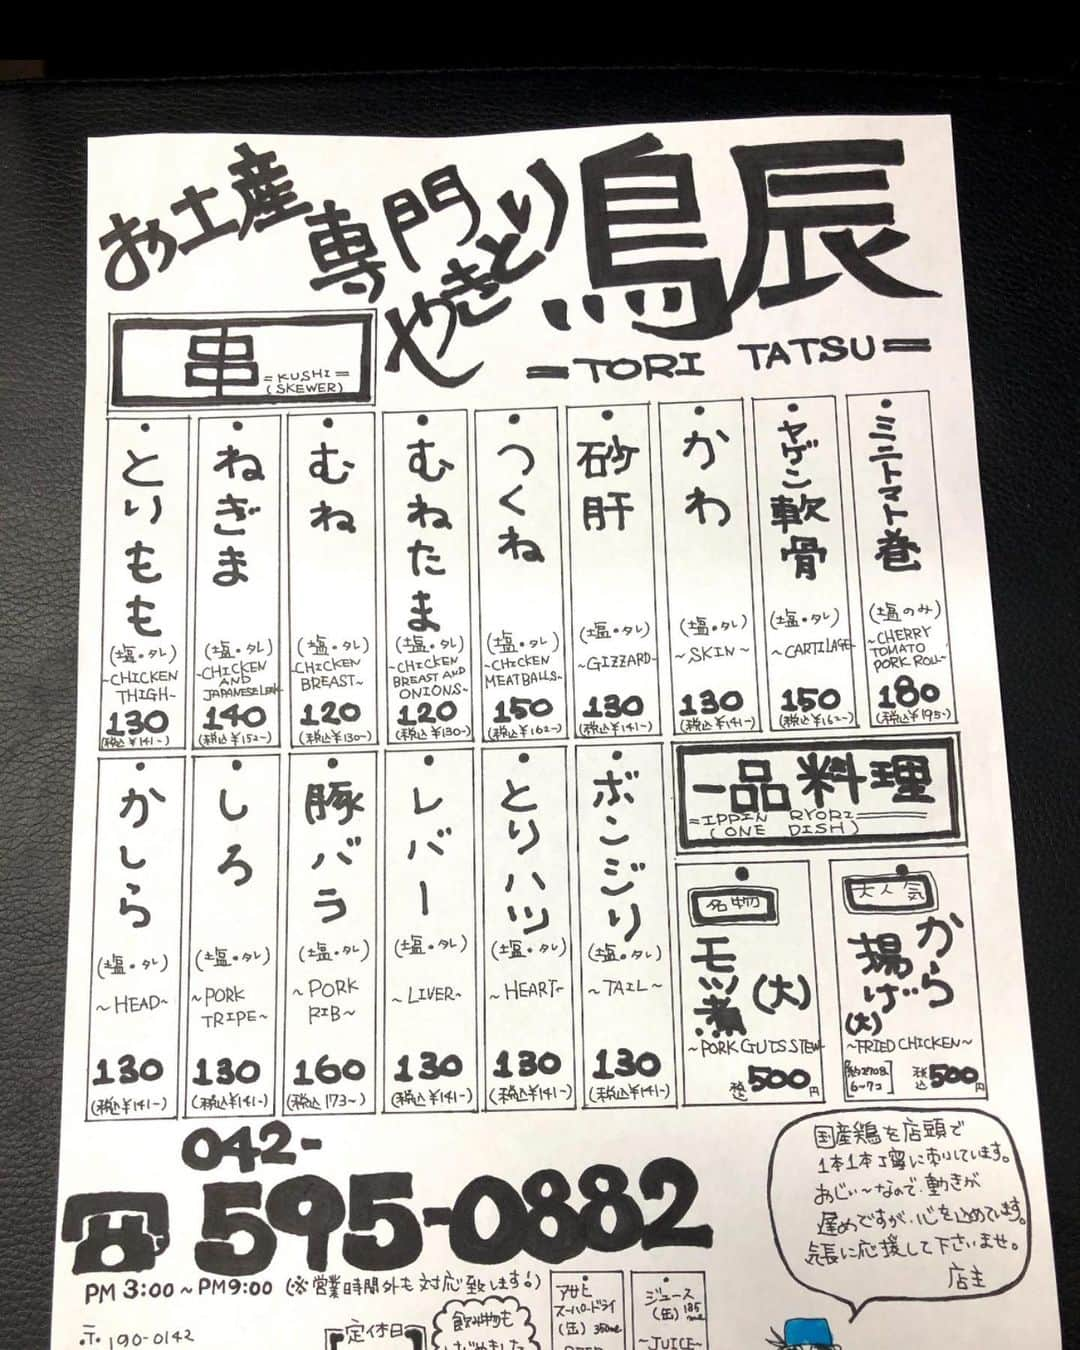 お土産
専門
やきとり
鳥辰
=TORI TATSU=
串
=KUSHI=
(SKEWER)
とりもも
(塩・タレ)
~CHICKEN
THIGH~
130
(税込¥141~)
ねぎま
(塩・タレ)
~CHICKEN
AND
JAPANESE LEEK~
140
(税込¥152~)
むね
(塩・タレ)
~CHICKEN
BREAST~
120
(税込¥130~)
むねたま
(塩・タレ)
~CHICKEN
BREAST AND
ONIONS~
120
(税込¥130~)
つくね
(塩・タレ)
~CHICKEN
MEATBALLS~
150
(税込¥162~)
砂肝
(塩・タレ)
~GIZZARD~
130
(税込¥141~)
かわ
(塩・タレ)
~SKIN~
130
(税込¥141~)
ヤゲン軟骨
(塩・タレ)
~CARTILAGE~
150
(税込¥162~)
ミニトマト巻
(塩のみ)
~CHERRY
TOMATO
PORK ROLL~
180
(税込¥195~)
かしら
(塩・タレ)
~HEAD~
130
(税込¥141~)
しろ
(塩・タレ)
~PORK
TRIPE~
130
(税込¥141~)
豚バラ
(塩・タレ)
~PORK
RIB~
160
(税込173~)
レバー
(塩・タレ)
~LIVER~
130
(税込¥141~)
とりハツ
(塩・タレ)
~HEART~
130
(税込¥141~)
ボンジリ
(塩・タレ)
~TAIL~
130
(税込¥141~)
一品料理
=IPPIN RYORI=
(ONE DISH)
名物
モツ煮(大)
~PORK GUTS STEW~
税込500円
大人気
から揚げ(大)
~FRIED CHICKEN~
[約270g
6~7コ]
税込500円
042-
☎595-0882
PM 3:00~PM9:00 (※営業時間外も対応致します!)
〒190-0142
定休日
飲み物も
はじめました
アサヒ
スーパードライ
(缶)350ml
BEER
ジュース
(缶)185ml
~JUICE~
国産鶏を店頭で
1本1本丁寧に刺しています。
おじぃ~なので、動きが
遅めですが、心を込めています。
気長に応援して下さいませ。
店主